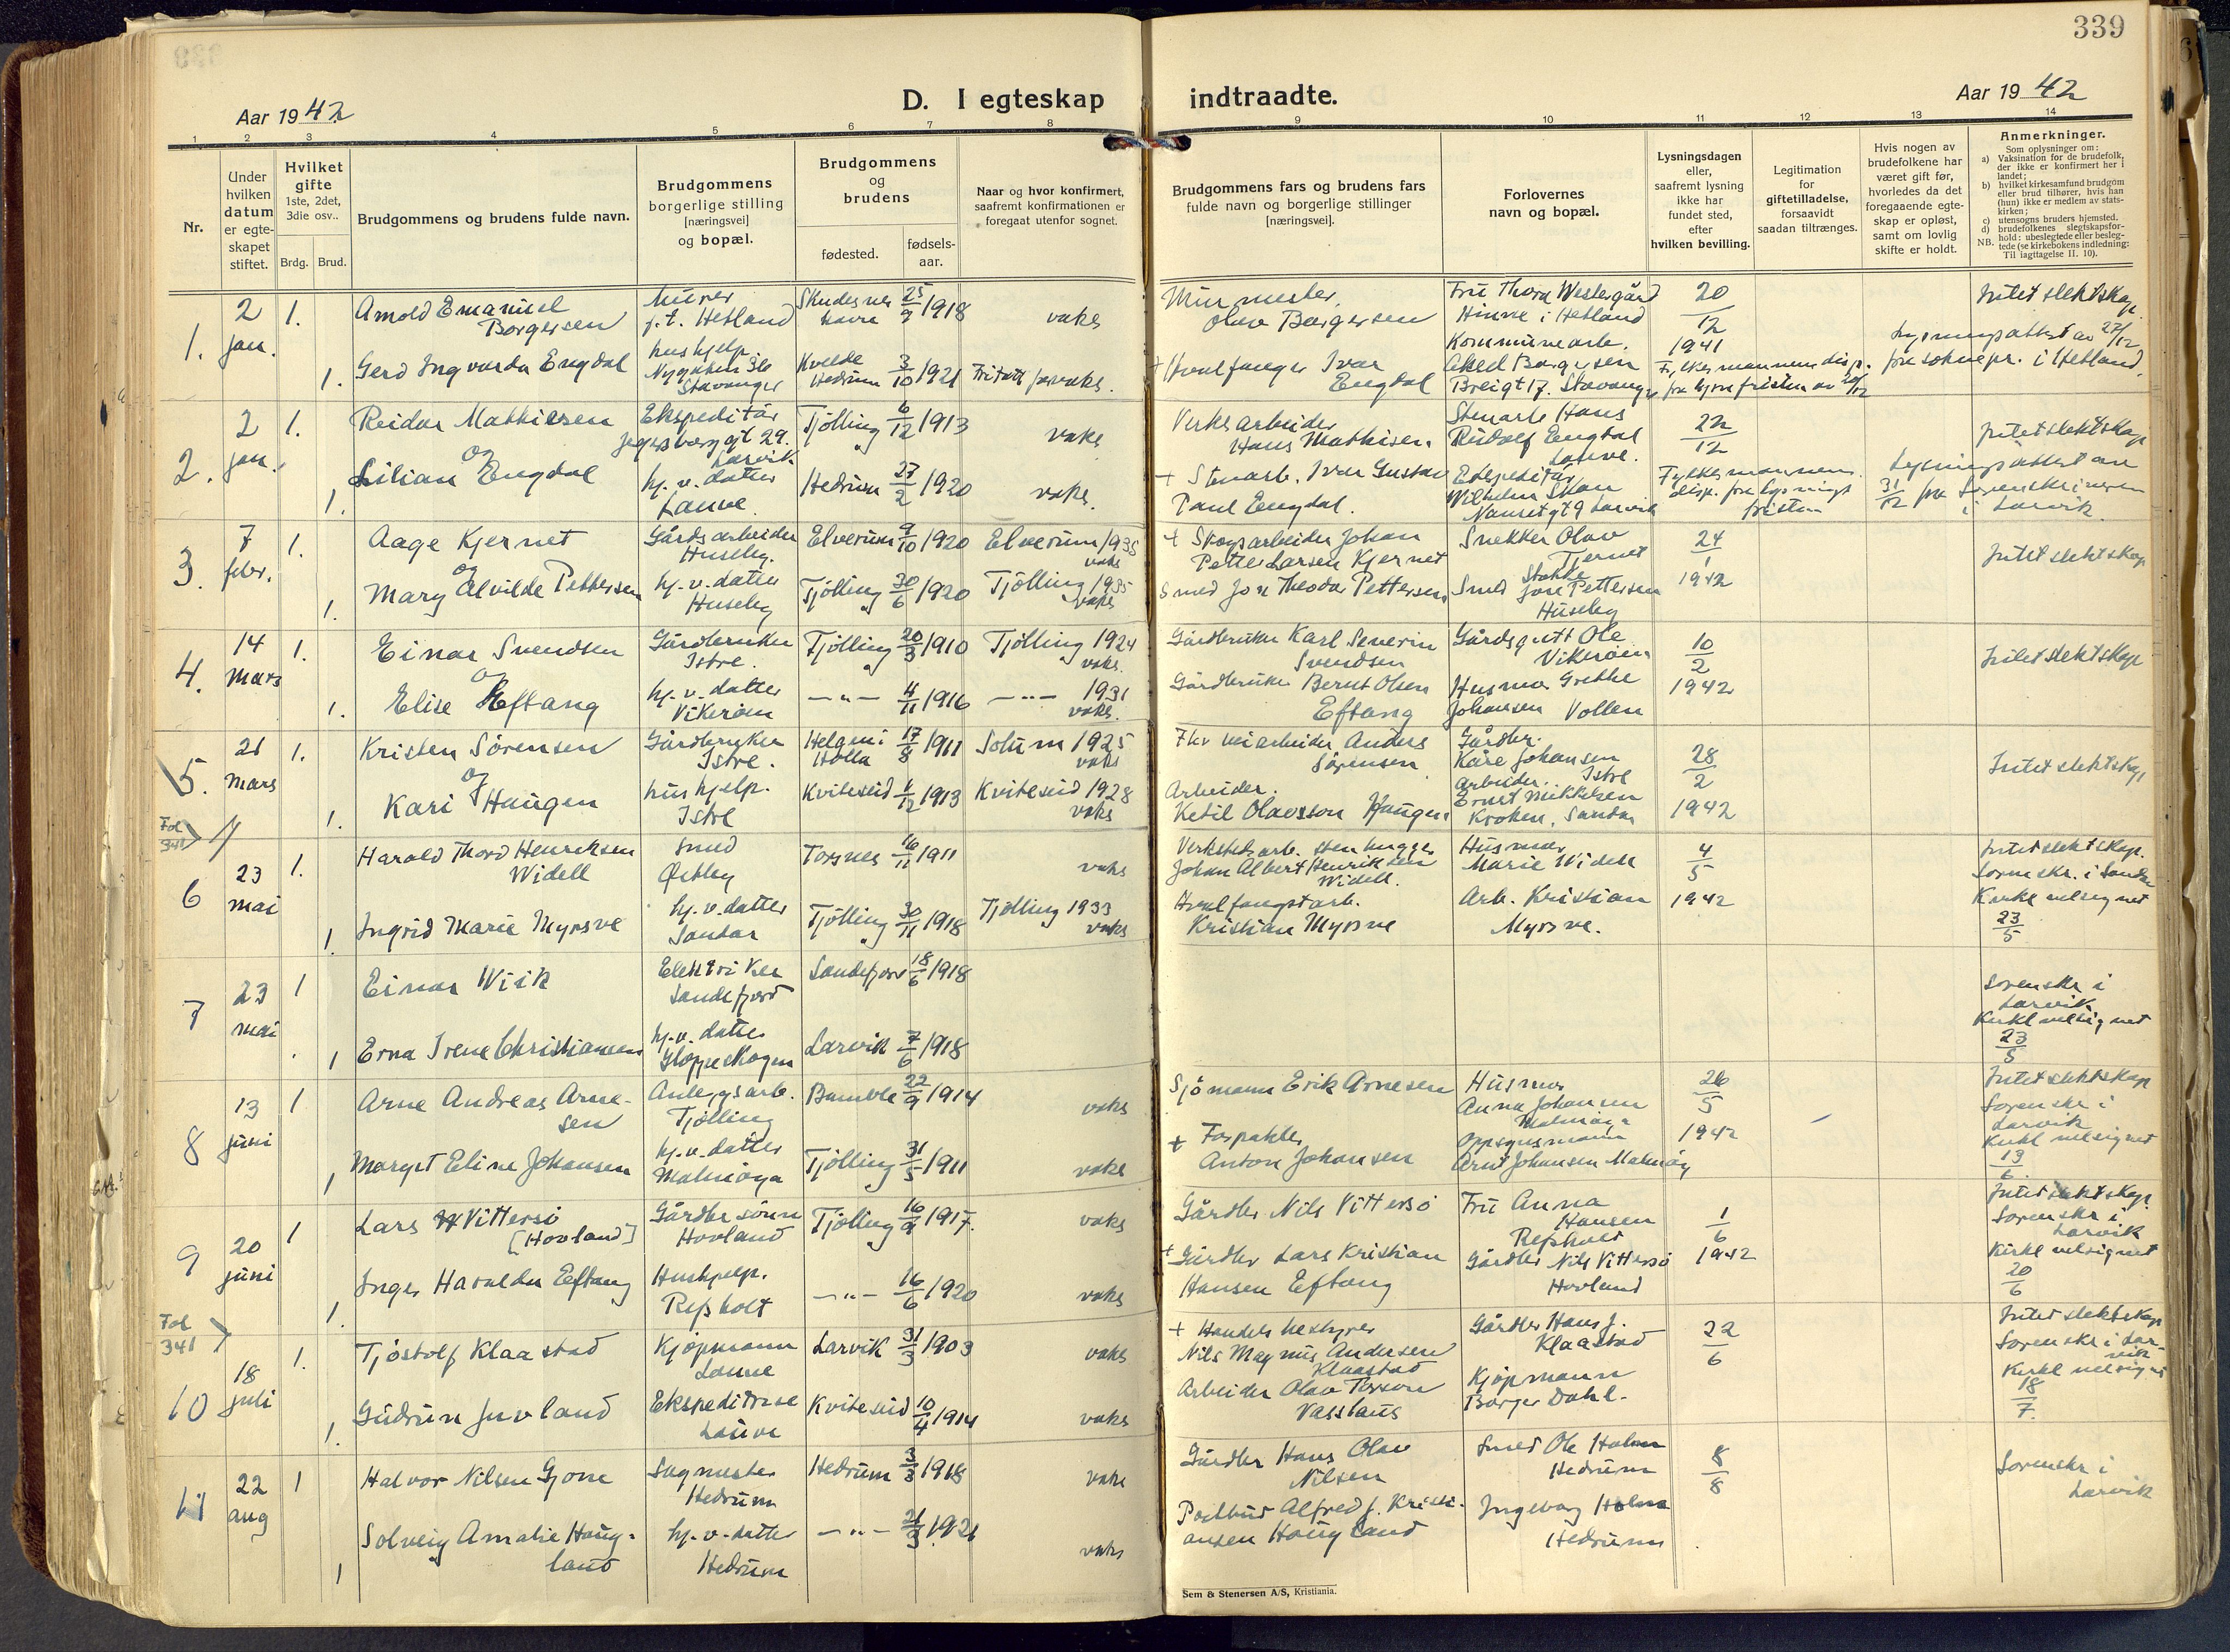 339
Aar 1942
D. I egteskap indtraadte.
Aar 1942
1 2 3 4 5 6 7 8 9 10 11 12 13 14
Nr.
Under hvilken datum er egteskapet stiftet.
Hvilket gifte 1ste, 2det, 3die osv..
Brdg. Brud.
Brudgommens og brudens fulde navn.
Brudgommens borgerlige stilling [næringsvei] og bopæl.
Brudgommens og brudens
fødested.
fødsels-aar.
Naar og hvor konfirmert, saafremt konfirmationen er foregaat utenfor sognet.
Brudgommens fars og brudens fars fulde navn og borgerlige stillinger [næringsvei].
Forlovernes navn og bopæl.
Lysningsdagen eller, saafremt lysning ikke har fundet sted, efter hvilken bevilling.
Legitimation for giftetilladelse, forsaavidt saadan tiltrænges.
Hvis nogen av brudefolkene har været gift før, hvorledes da det foregaaende egteskap er opløst, samt om lovlig skifte er holdt.
Anmerkninger.
Som oplysninger om:
a) Vaksination for de brudefolk, der ikke er konfirmert her i landet;
b) hvilket kirkesamfund brudgom eller brud tilhører, hvis han (hun) ikke er medlem av statskirken;
c) utensogns bruders hjemsted,
d) brudefolkenes slegtskapsforhold: ubeslegtede eller beslegtede (se kirkebokens indledning:
NB. Til iagttagelse II. 10).
1. 2 jan. 1. Arnold Emanuel Borgersen
murer p.t. Hetland
Skudesneshavn 25/9 1918
vaks
Murmester Olav Borgersen
Fru Thora Westergård Hinna i Hetland
20/12 1941
Intet slektskap
1. Gerd Ingvarda Engdal
hushjelp Stavanger
Kvelde Hedrum 3/10 1921
vaks.
+ Hvalfanger Ivar Engdal
Kommunearb. Aksel Borgersen Breigt 17. Stavanger
Fylkesmannens disp. fra lysn. fristen av 20/12
Lysningsattest av 27/12 fra soknepr. i Hetland.
2. 2 jan. 1. Reidar Mathisen
og
Ekspeditør Jegersborggt 29. Larvik
Tjølling 6/12 1913
vaks
Verksarbeider Hans Mathisen
Stenarb Hans Rudolf Engdal Lauve.
22/12
Intet slektskap
1. Lilian Engdal
hj. v. datter Lauve.
Hedrum 27/2 1920
vaks.
+ Stenarb. Ivar Gustav Paul Engdal.
Ekspeditør Wilhelm Skau Nansetgt 9 Larvik
Fylkesmannens disp. fra lysnings fristen
Lysningsattest av 31/12 fra Sorenskriveren i Larvik.
3. 7 febr. 1. Aage Kjernet
og
Gårdsarbeider Huseby.
Elverum 9/10 1920
Elverum 1935 vaks
+ Skogsarbeider Johan Petter Larsen Kjernet
Snekker Olav Tjernet Stokke
24/1 1942
Intet slektskap
1. Mary Alvilde Pettersen
hj. v. datter Huseby
Tjølling 30/6 1920
Tjølling 1935 vaks
Smed Jon Theodor Pettersen
Smed Jon Pettersen Huseby
4. 14 Mars 1. Einar Svendsen
og
Gårdbruker Istre.
Tjølling 20/3 1910
Tjølling 1924 vaks.
Gårdbruker Karl Severin Svendsen
Gårdsgutt Ole Vikerøien
10/2 1942
Intet slektskap
1. Elise Eftang
hj. v. datter Vikerøien
—"— 4/11 1916
—"— 1931 vaks.
Gårdbruker Bernt Olsen Eftang
Husmor Grethe Johansen Vollen
5. 21 Mars 1. Kristen Sørensen
og
Gårdbruker Istre.
Helgen i Holla 17/8 1911
Solum 1925 vaks
Fhv veiarbeider Anders Sørensen
Gårdbr. Kåre Johansen Istre
28/2 1942
Intet slektskap
1. Kari Haugen
hushjelp. Istre
Kviteseid 6/12 1913
Kviteseid 1928 vaks
Arbeider. Ketil Olavsson Haugen
Arbeider. Ernst Mikkelsen Kroken, Sandar
Fol 341
6 23 mai 1. Harald Thord Henriksen Widell
Smed Østby
Torsnes 16/11 1911
vaks
Verkstedarb. stenhugger Johan Albert Henriksen Widell.
Husmor Marie Widell
4/5 1942
Intet slektskap.
Sorenskr. i Sandar
Kirkl velsignet 23/5
1. Ingrid Marie Myrsve
hj. v. datter Sandar
Tjølling 30/11 1918
Tjølling 1933 vaks
Hvalfangstarb. Kristian Myrsve
Arb. Kristian Myrsve.
7 23 mai 1 Einar Wiik
Elektriker Sandefjord
Sandefjord 18/6 1918
Sorenskr i Larvik
Kirkl velsignet 23/5
1 Erna Irene Christiansen
hj. v. datter Gloppeskogen
Larvik 7/6 1918
8 13 juni 1 Arne Andreas Arnesen
Anleggsarb. Tjølling
Bamble 22/9 1914
vaks
Sjømann Erik Arnesen
Husmor Anna Johansen Malmøya
26/5 1942
Intet slektskap
Sorenskr i Larvik
Kirkl velsignet 13/6
1 Margit Eline Johansen
hj. v. datter Malmøya
Tjølling 31/5 1911
vaks
+ Forpakter Anton Johansen
Oppsynsmann Arnt Johansen Malmøy
9 20 juni 1 Lars Vittersø [Hovland]
Gårdbr sønn Hovland
Tjølling 16/9 1917.
vaks
Gårdbr Nils Vittersø
Fru Anna Hansen Repsholt
1/6 1942
Intet slektskap.
Sorenskr i Larvik
Kirkl velsignet 20/6
1. Inger Haralda Eftang
Hushjelp. Repsholt
—"— 16/6 1920
vaks
+ Gårdbr Lars Kristian Hansen Eftang
Gårdbr Nils Vittersø Hovland
Fol 341
10 18 juli 1. Tjøstolf Klaastad
Kjøpmann Lauve
Larvik 31/3 1903
vaks
+ Handelsbestyrer Nils Magnus Andersen Klaastad
Gårdbr Hans J. Klaastad
22/6
Intet slektskap
Sorenskr i Larvik
Kirkl velsignet 18/7.
1. Gudrun Juvland
Ekspeditrise Lauve
Kviteseid 10/4 1914
vaks
Arbeider Olav Vasstaus
Kjøpmann Borger Dahl.
11 22 aug 1 Halvor Nilsen Gjone
Sagmester Hedrum
Hedrum 3/3 1918
vaks
Gårdbr Hans Olav Nilsen
Smed Ole Holm Hedrum
8/8
Sorenskr i Larvik
1 Solveig Amalie Haugland
hj. v. datter Hedrum
—"— 21/9 1921
vaks
Postbud Alfred J. Kristiansen Haugland
Ingeborg Holm Hedrum
Sem & Stenersen A/S, Kristiania.